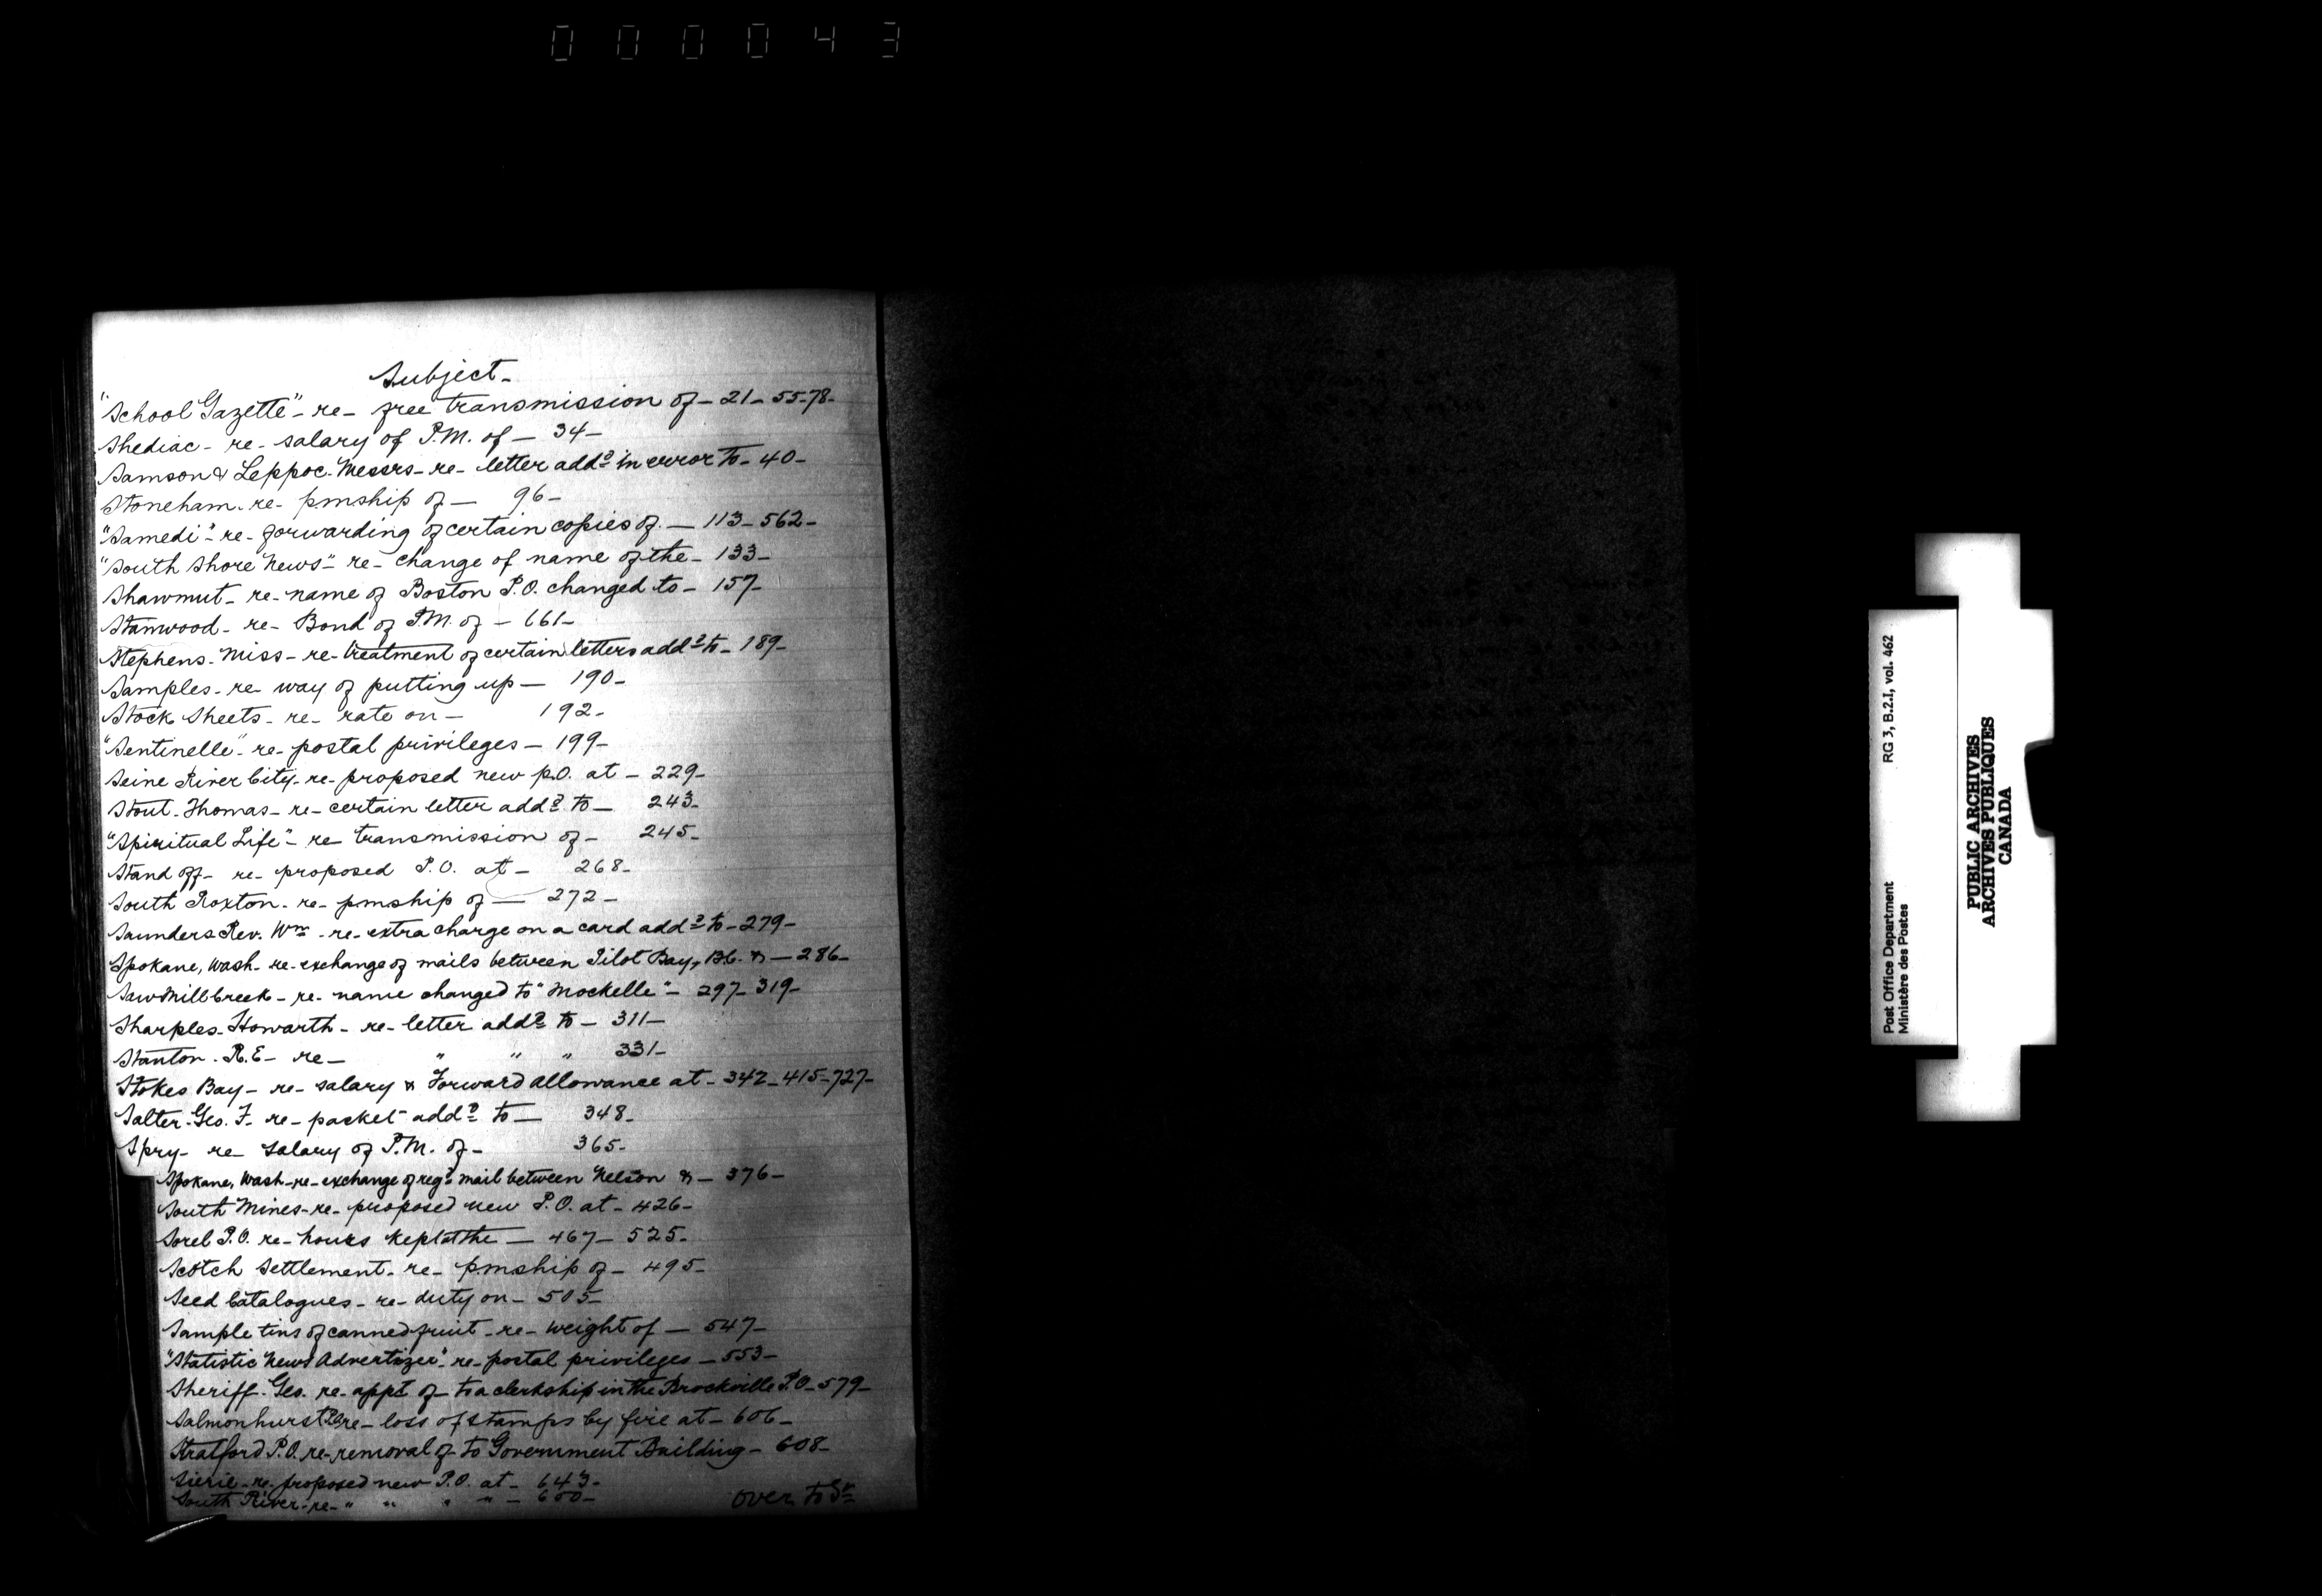 000043
Subject-
"School Gazette"- re- free transmission of- 21- 55-78-
Shediac- re- salary of P.M. of- 34-
Samson & Leppoc- Messrs- re- letter addd in error to- 40-
Stoneham- re- pmship of- 96-
"Samedi"- re- forwarding of certain copies of- 113- 562-
"South Shore News"- re- change of name of the- 133-
Shawmut- re- name of Boston P.O. changed to- 157-
Stanwood- re- Bond of P.M. of- 661-
Stephens- Miss- re- treatment of certain letters addd to- 189-
Samples- re- way of putting up- 190-
Stock Sheets- re- rate on- 192-
"Sentinelle"- re- postal privileges- 199-
Seine River City- re- proposed new p.O. at- 229-
Stout- Thomas- re- certain letter addd to- 243-
"Spiritual Life"- re- transmission of- 245-
Stand off- re- proposed P.O. at- 268-
South Roxton- re- pmship of- 272-
Saunders Rev. Wm- re- extra charge on a card addd to- 279-
Spokane, Wash- re- exchange of mails between Pilot Bay, B.C. &- 286-
Saw Mill Creek- re- name changed to "Mockelle"- 297- 319-
Sharples- Howarth- re- letter addd to- 311-
Stanton- R.E- re- " " " 331-
Stokes Bay- re- salary & Forward Allowance at- 342- 415- 727-
Salter- Geo. F- re- packet addd to- 348-
Spry- re- salary of P.M. of- 365-
Spokane, Wash- re- exchange of regd mail between Nelson &- 376-
South Mines- re- proposed new P.O. at- 426-
Sorel P.O. re- hours kept at the- 467- 525-
Scotch Settlement- re- pmship of- 495-
Seed Catalogues- re- duty on- 505-
Sample tins of canned fruit- re- weight of- 547-
"Statistic News Advertizer"- re- postal privileges- 553-
Sheriff- Geo. re- appt of- to a clerkship in the Brockville P.O- 579-
Salmonhurst re- loss of stamps by fire at- 606-
Stratford P.O. re- removal of- to Government Building- 608-
re- proposed new P.O. at- 643-
South River- re- " " " "-
over to
RG 3, B.2.I, vol. 462
Post Office Department
Ministère des Postes
PUBLIC ARCHIVES
ARCHIVES PUBLIQUES
CANADA